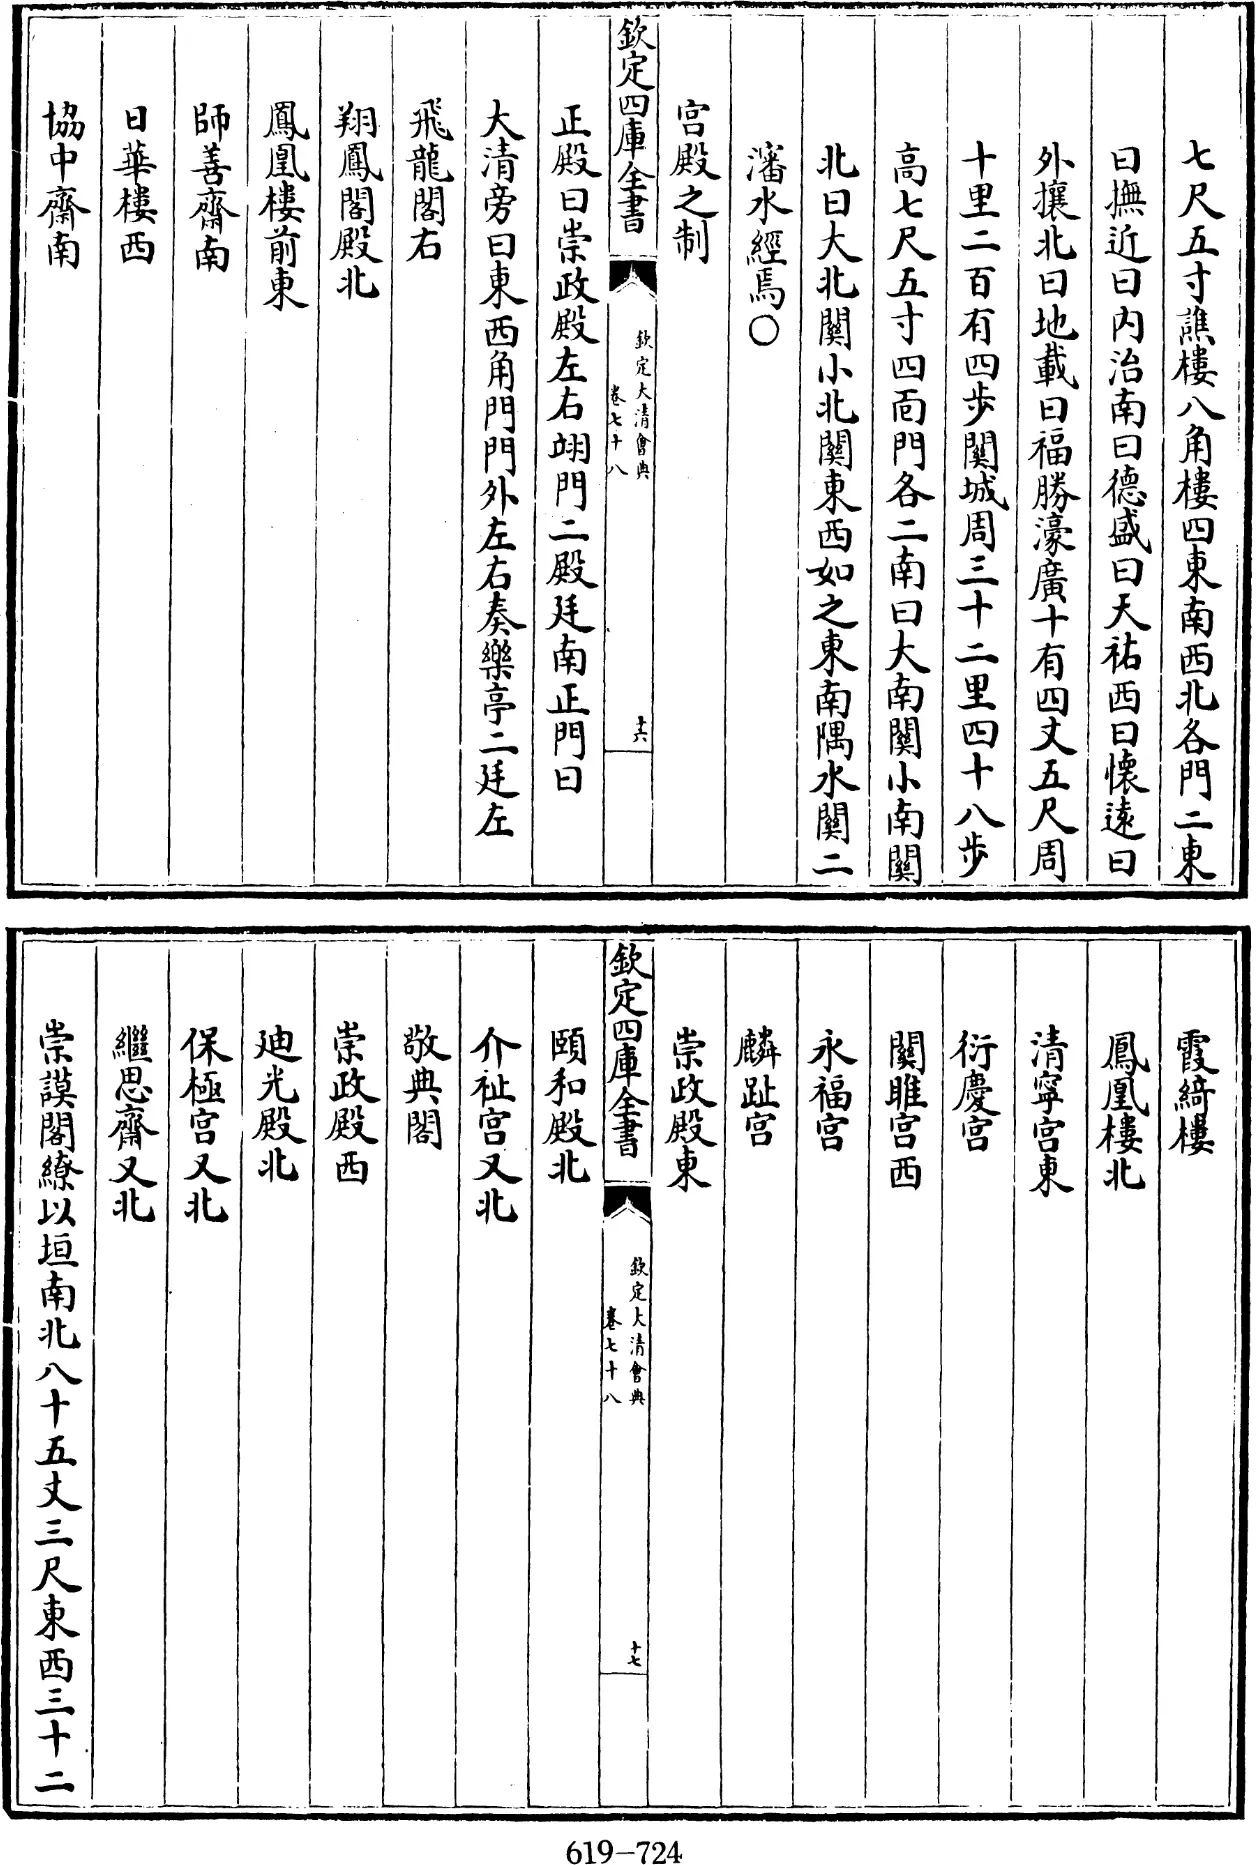 七尺五寸譙樓八角樓四東南西北各門二東
曰撫近曰内治南曰德盛曰天祐西曰懷遠曰
外攘北曰地載曰福勝濠廣十有四丈五尺周
十里二百有四步關城周三十二里四十八步
高七尺五寸四面門各二南曰大南關小南關
北曰大北關小北關東西如之東南隅水關二
瀋水經焉〇
宫殿之制
欽定四庫全書
欽定大清會典
卷七十八
十六
正殿曰崇政殿左右翊門二殿廷南正門曰
大清旁曰東西角門門外左右奏樂亭二廷左
飛龍閣右
翔鳳閣殿北
鳳凰樓前東
師善齋南
日華樓西
協中齋南
霞綺樓
鳳凰樓北
清寧宫東
衍慶宫
關雎宫西
永福宫
麟趾宫
崇政殿東
欽定四庫全書
欽定大清會典
卷七十八
十七
頤和殿北
介祉宫又北
敬典閣
崇政殿西
迪光殿北
保極宫又北
繼思齋又北
崇謨閣繚以垣南北八十五丈三尺東西三十二
619-724